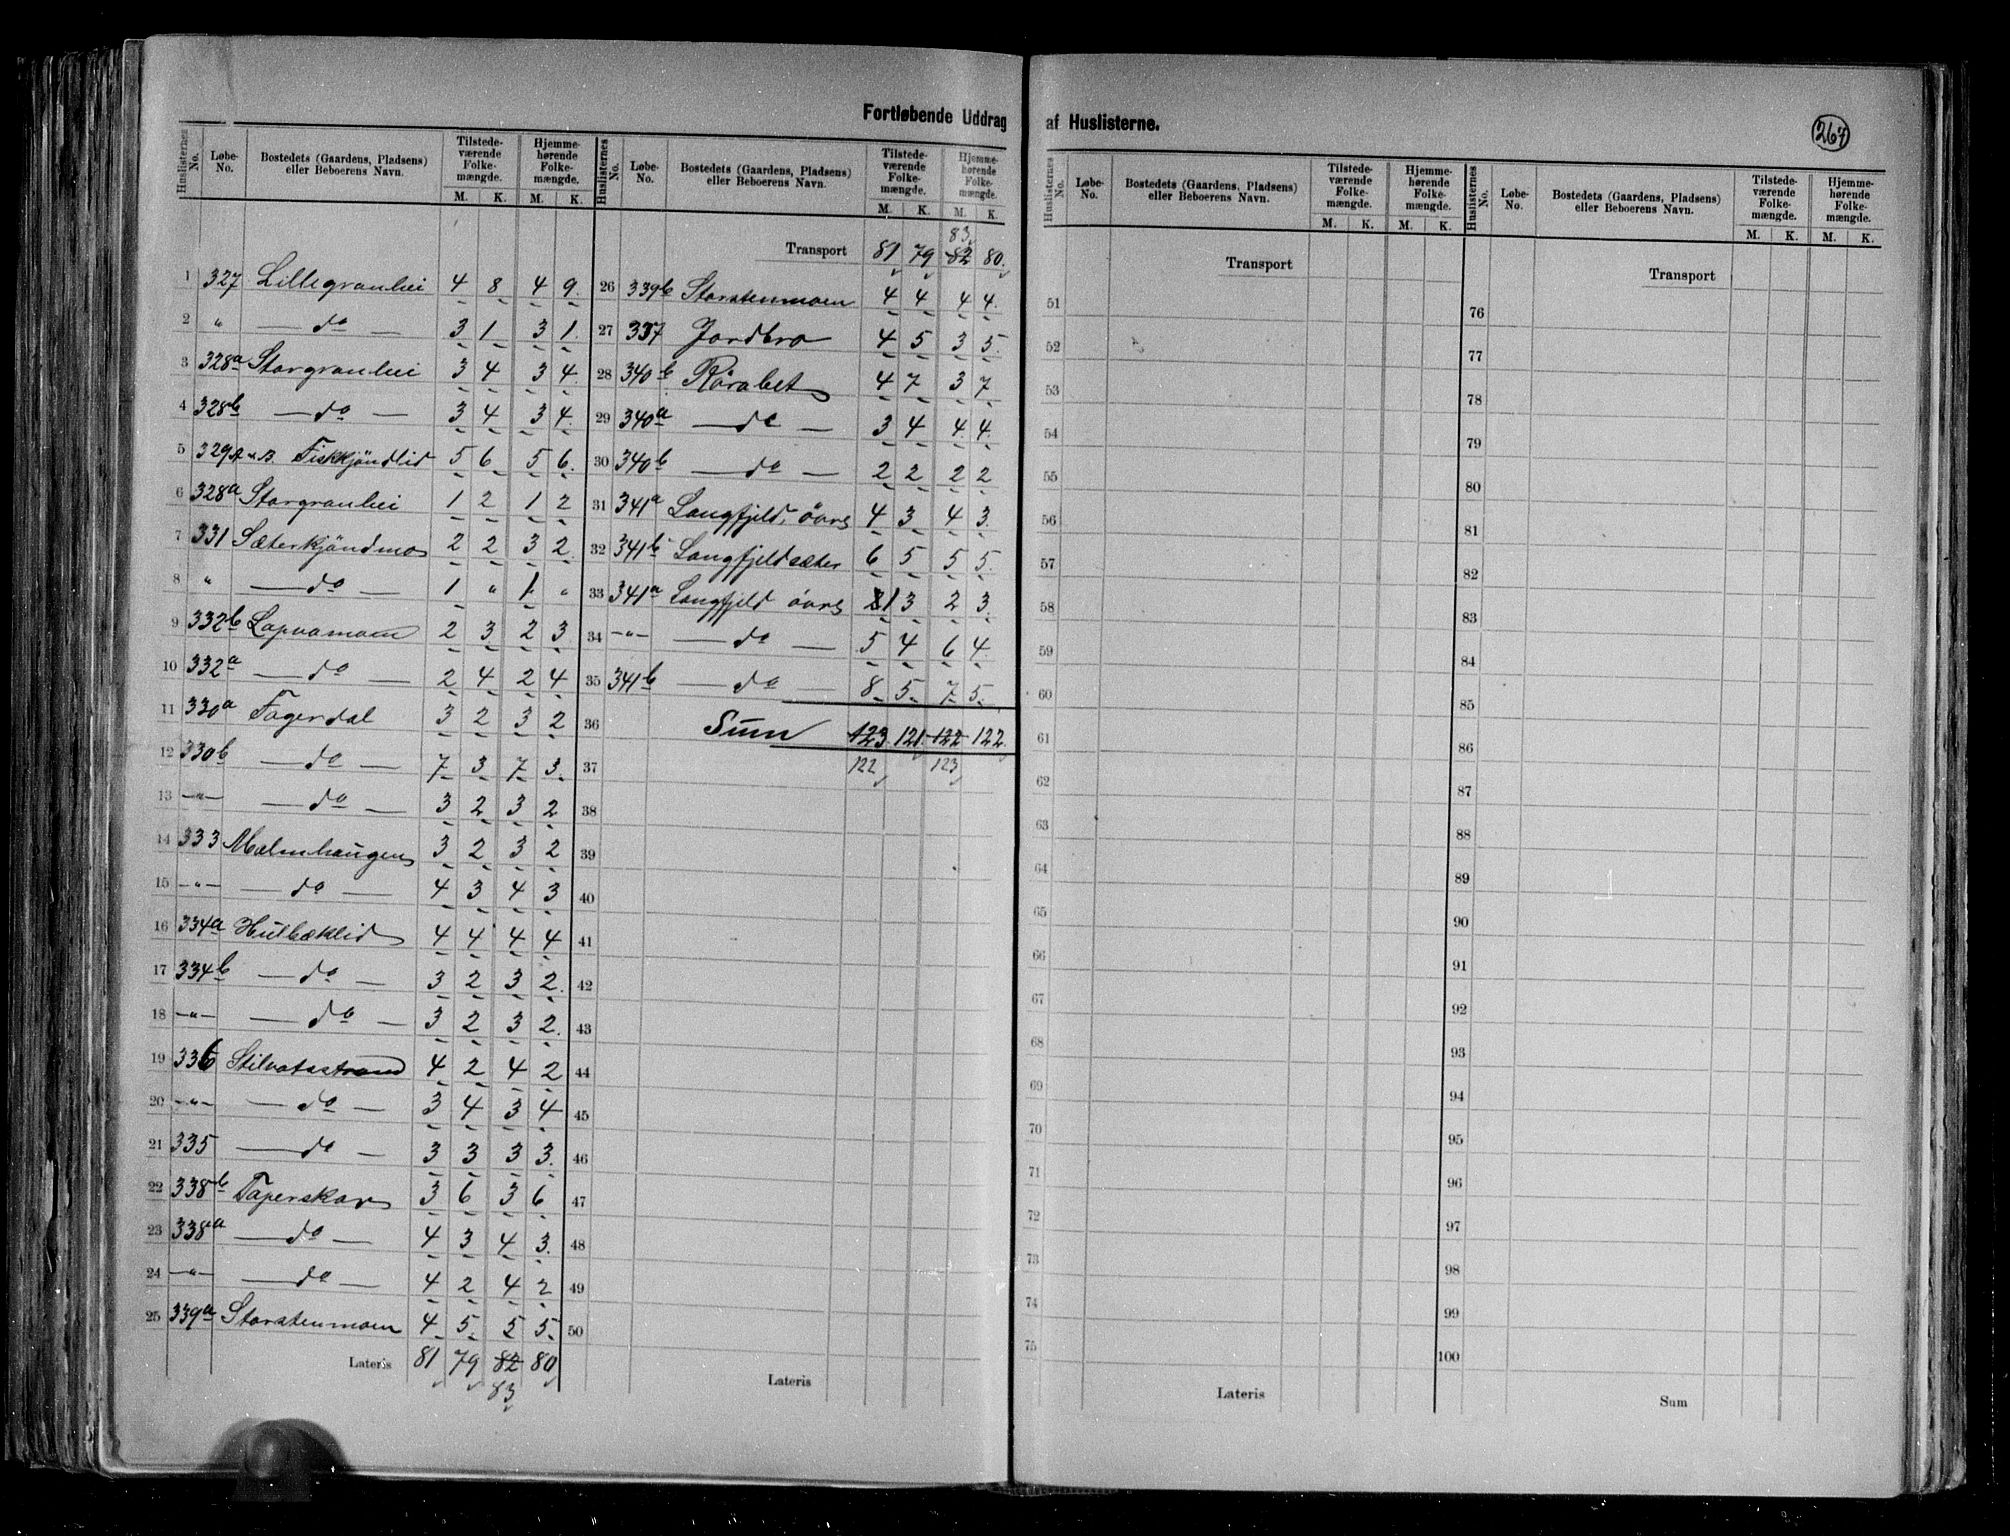 Fortløbende Uddrag af Huslisterne.
267
Huslisternes No. Løbe-No. Bostedets (Gaardens, Pladsens) eller Beboerens Navn. Tilstede-værende Folke-mængde. M. K. Hjemme-hørende Folke-mængde. M. K.
1 327 Lillegranhei 4 8 4 9
2 " — do — 3 1 3 1
3 328a Storgranhei 3 4 3 4
4 328b — do — 3 4 3 4
5 329A.B. Fiskkjöndlid 5 6 5 6
6 328a Storgranhei 1 2 1 2
7 331 Sæterkjöndmo 2 2 3 2
8 " — do — 1 " 1 "
9 332b Lapvamoen 2 3 2 3
10 332a — do — 2 4 2 4
11 330a Fagerdal 3 2 3 2
12 330b — do — 7 3 7 3
13 —"— — do — 3 2 3 2
14 333 Malmhaugen 3 2 3 2
15 —"— — do — 4 3 4 3
16 334a Hulbæklid 4 4 4 4
17 334b — do — 3 2 3 2
18 —"— — do — 3 2 3 2
19 336 Stilvatsstrand 4 2 4 2
20 —"— — do — 3 4 3 4
21 335 — do — 3 3 3 3
22 338b Tåperskar 3 6 3 6
23 338a — do — 4 3 4 3
24 —"— — do — 4 2 4 2
25 339a Storstenmoen 4 5 5 5
Lateris 81 79 82 80
83
Huslisternes No. Løbe-No. Bostedets (Gaardens, Pladsens) eller Beboerens Navn. Tilstede-værende Folke-mængde. M. K. Hjemme-hørende Folke-mængde. M. K.
83
Transport 81 79 82 80
26 339b Storstenmoen 4 4 4 4
27 337 Jordbro 4 5 3 5
28 340b Rörabet 4 7 3 7
29 340a — do — 3 4 4 4
30 340b — do — 2 2 2 2
31 341a Langfjeld, övre 4 3 4 3
32 341b Langfjeldsæter 6 5 5 5
33 341a Langfjeld övre 1 3 2 3
34 —"— — do — 5 4 6 4
35 341b — do — 8 5 7 5
36 Sum 123 121 122 122
37 122 123
38
39
40
41
42
43
44
45
46
47
48
49
50
Lateris
Huslisternes No. Løbe-No. Bostedets (Gaardens, Pladsens) eller Beboerens Navn. Tilstede-værende Folke-mængde. M. K. Hjemme-hørende Folke-mængde. M. K.
Transport
51
52
53
54
55
56
57
58
59
60
61
62
63
64
65
66
67
68
69
70
71
72
73
74
75
Lateris
Huslisternes No. Løbe-No. Bostedets (Gaardens, Pladsens) eller Beboerens Navn. Tilstede-værende Folke-mængde. M. K. Hjemme-hørende Folke-mængde. M. K.
Transport
76
77
78
79
80
81
82
83
84
85
86
87
88
89
90
91
92
93
94
95
96
97
98
99
100
Sum